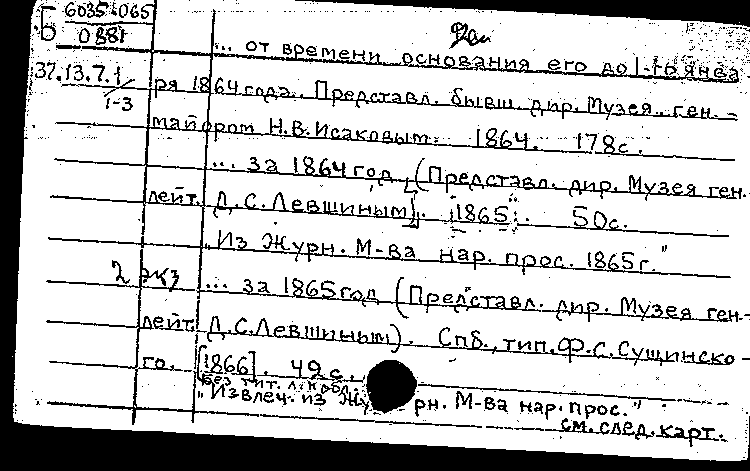 Б 6035-065
Б 0881
... от времени основания его до 1-го янва
37.13.7.1
1-3
ря 1864 года. Представл. бывш. дир. Музея, ген.-
майором Н.В.Исаковым. 1864. 178с.
... за 1864 год. (Представл. дир. Музея ген.-
лейт. Д.С.Левшиным]. [1865]. 50с.
"Из Журн. М-ва нар. прос. 1865г."
2 экз
... за 1865 год (Представл. дир. Музея ген-
лейт. Д.С.Левшиным). Спб., тип. Ф.С.Сущинско-
го. [1866]. 42с.
Без тит. л. и обл.
"Извлеч. из Журн. М-ва нар. прос."
см. след. карт.